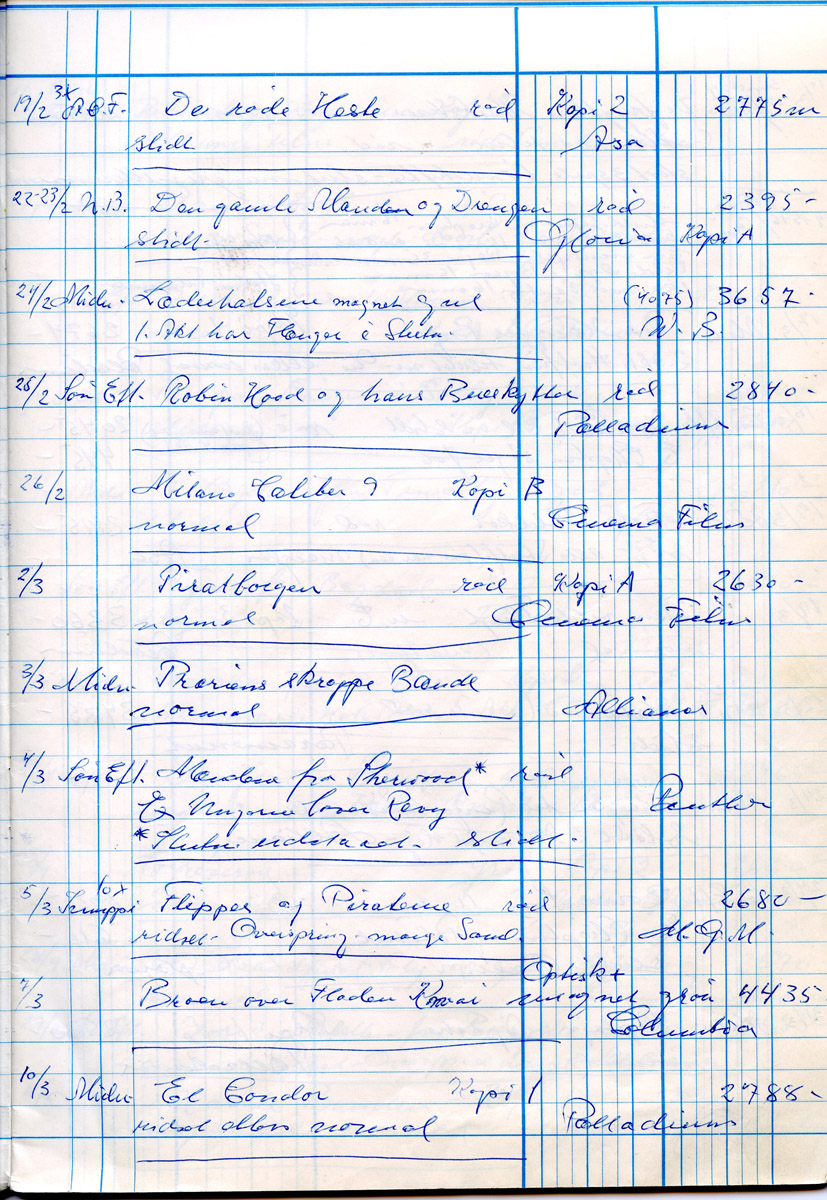 19/2 3x De røde Heste rød Kopi 2 2775 m
slidt Asa
22-23/2 N.B. Den gamle Manden og Drengen rød 2395 -
slidt - Gloria Kopi A
24/2 Midn. Læderhalsene magnet (4075) 3657 -
1. Akt har W. B.
25/2 Søn Eft. Robin Hood og hans Bueskytter rød 2840 -
Palladium
26/2 Milano Caliber 9 Kopi B
normal Cinema Film
2/3 Piratborgen rød Kopi A 2630 -
normal Cinema Film
3/3 Midn. Præriens skrappe Bande
normal Alliance
4/3 Søn Eft. Mændene fra Sherwood * rød
Panther
* slidt -
5/3 10x Flipper og Piraterne rød 2680 -
ridset - Overspring - mange Saml. M. G. M.
7/3 Optisk +
Broen over Floden Kwai magnet grøn 4435
Columbia
10/3 Midn. El Condor Kopi 1 2788 -
ridset ellers normal Palladium